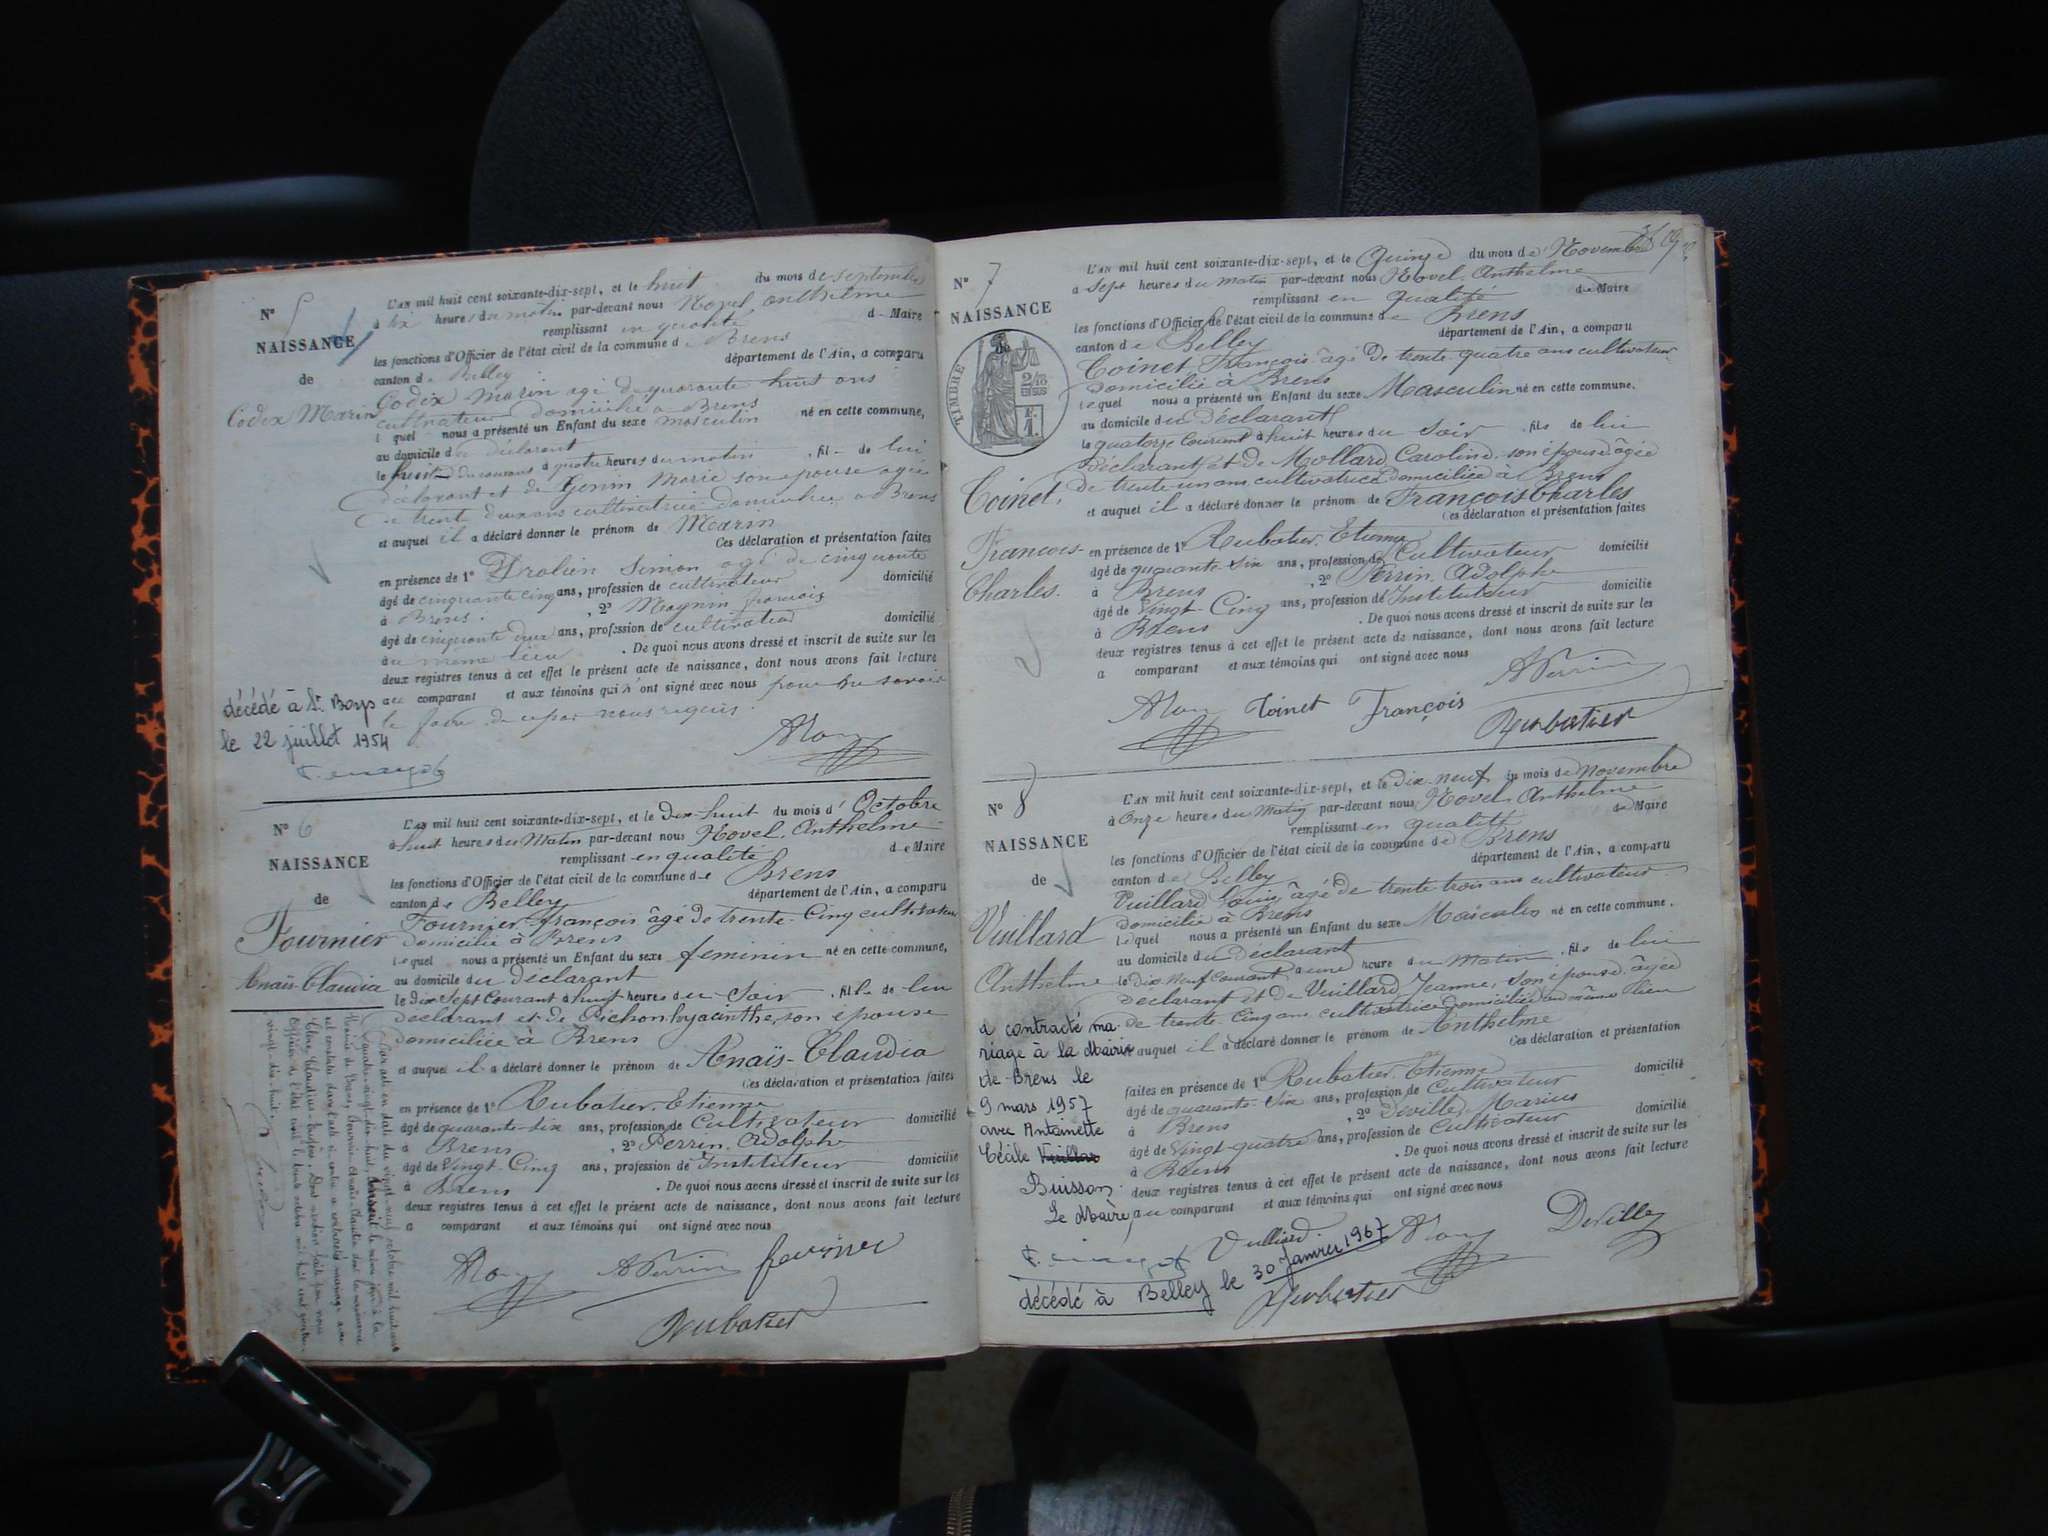 N° 5
NAISSANCE
de
Codex Marin
L'AN mil huit cent soixante-dix-sept, et le huit du mois de septembre
à dix heures du matin par-devant nous Hovel anthelme
remplissant en qualité de Maire
les fonctions d'Officier de l'état civil de la commune de Brens
canton de Belley département de l'Ain, a comparu
Codex Marin agé de quarante huit ans
cultivateur domicilié à Brens
lequel nous a présenté un Enfant du sexe masculin né en cette commune,
au domicile du déclarant
le huit du courant à quatre heures du matin, fils de lui
déclarant et de Genin Marie son epouse agée
de trente deux ans cultivatrice domiciliée à Brens
et auquel il a déclaré donner le prénom de Marin
Ces déclaration et présentation faites
en présence de 1° Simon agé de cinquante
âgé de cinquante cinq ans, profession de cultivateur domicilié
à Brens. , 2° Moynin françois
âgé de cinquante deux ans, profession de cultivateur domicilié
au même lieu . De quoi nous avons dressé et inscrit de suite sur les
deux registres tenus à cet effet le présent acte de naissance, dont nous avons fait lecture
au comparant et aux témoins qui n'ont signé avec nous pour ne savoir
le faire de ce par nous requis.
décédé à St Boys
le 22 juillet 1954
N° 6
NAISSANCE
de
Fournier
Anaïs-Claudia
L'AN mil huit cent soixante-dix-sept, et le Dix-huit du mois d' Octobre
à huit heures du Matin par-devant nous Hovel Anthelme
remplissant en qualité de Maire
les fonctions d'Officier de l'état civil de la commune de Brens
canton de Belley département de l'Ain, a comparu
Fournier François âgé de trente-Cinq cultivateur
domicilié à Brens
lequel nous a présenté un Enfant du sexe feminin né en cette commune,
au domicile du Déclarant
le dix Sept Courant à neuf heures du Soir, fille de lui
déclarant et de Pichon hyacinthe, son épouse
domiciliée à Brens
et auquel il a déclaré donner le prénom de Anaïs-Claudia
Ces déclaration et présentation faites
en présence de 1° Rubatier Etienne
âgé de quarante-six ans, profession de Cultivateur domicilié
à Brens , 2° Perrin Adolphe
âgé de Vingt Cinq ans, profession de Instituteur domicilié
à Brens . De quoi nous avons dressé et inscrit de suite sur les
deux registres tenus à cet effet le présent acte de naissance, dont nous avons fait lecture
a comparant et aux témoins qui ont signé avec nous
APerrin fournier
Rubatier
N° 7
NAISSANCE
de
TIMBRE
2/10
EN SUS
F.
1.
Coinet,
François-
Charles.
L'AN mil huit cent soixante-dix-sept, et le Quinze du mois de Novembre
à Sept heures du matin par-devant nous Hovel Anthelme
remplissant en qualité de Maire
les fonctions d'Officier de l'état civil de la commune de Brens
canton de Belley département de l'Ain, a comparu
Coinet, François âgé de trente-quatre ans cultivateur
domicilié à Brens
lequel nous a présenté un Enfant du sexe Masculin né en cette commune,
au domicile du Déclarant
le quatorze Courant à huit heures du Soir, fils de lui
Déclarant et de Mollard Caroline son épouse âgée
de trente-un ans cultivatrice domiciliée à Brens
et auquel il a déclaré donner le prénom de François Charles
Ces déclaration et présentation faites
en présence de 1° Rubatier Etienne
âgé de quarante-six ans, profession de Cultivateur domicilié
à Brens , 2° Perrin Adolphe
âgé de Vingt-Cinq ans, profession de Instituteur domicilié
à Brens . De quoi nous avons dressé et inscrit de suite sur les
deux registres tenus à cet effet le présent acte de naissance, dont nous avons fait lecture
a comparant et aux témoins qui ont signé avec nous
APerrin
Coinet François
Rubatier
N° 8
NAISSANCE
de
Vuillard
Anthelme
L'AN mil huit cent soixante-dix-sept, et le Dix-neuf du mois de Novembre
à Onze heures du Matin par-devant nous Hovel Anthelme
remplissant en qualité de Maire
les fonctions d'Officier de l'état civil de la commune de Brens
canton de Belley département de l'Ain, a comparu
Vuillard Louis âgé de trente-trois ans cultivateur
domicilié à Brens
lequel nous a présenté un Enfant du sexe Masculin né en cette commune,
au domicile du Déclarant
le dix Neuf Courant à une heure du Matin, fils de lui
déclarant et de Vuillard Jeanne, son épouse âgée
de trente-Cinq ans cultivatrice domiciliée au même lieu
et auquel il a déclaré donner le prénom de Anthelme
Ces déclaration et présentation
faites en présence de 1° Rubatier Etienne
âgé de quarante-Six ans, profession de Cultivateur domicilié
à Brens 2° Deville Marius
âgé de Vingt-quatre ans, profession de Cultivateur domicilié
à Brens . De quoi nous avons dressé et inscrit de suite sur les
deux registres tenus à cet effet le présent acte de naissance, dont nous avons fait lecture
au comparant et aux témoins qui ont signé avec nous
a contracté ma-
riage à la Mairie
de Brens le
9 mars 1957
avec Antoinette
Cécile
Buisson
Le Maire,
Vuillard Deville
Rubatier
décédé à Belley le 30 Janvier 1967